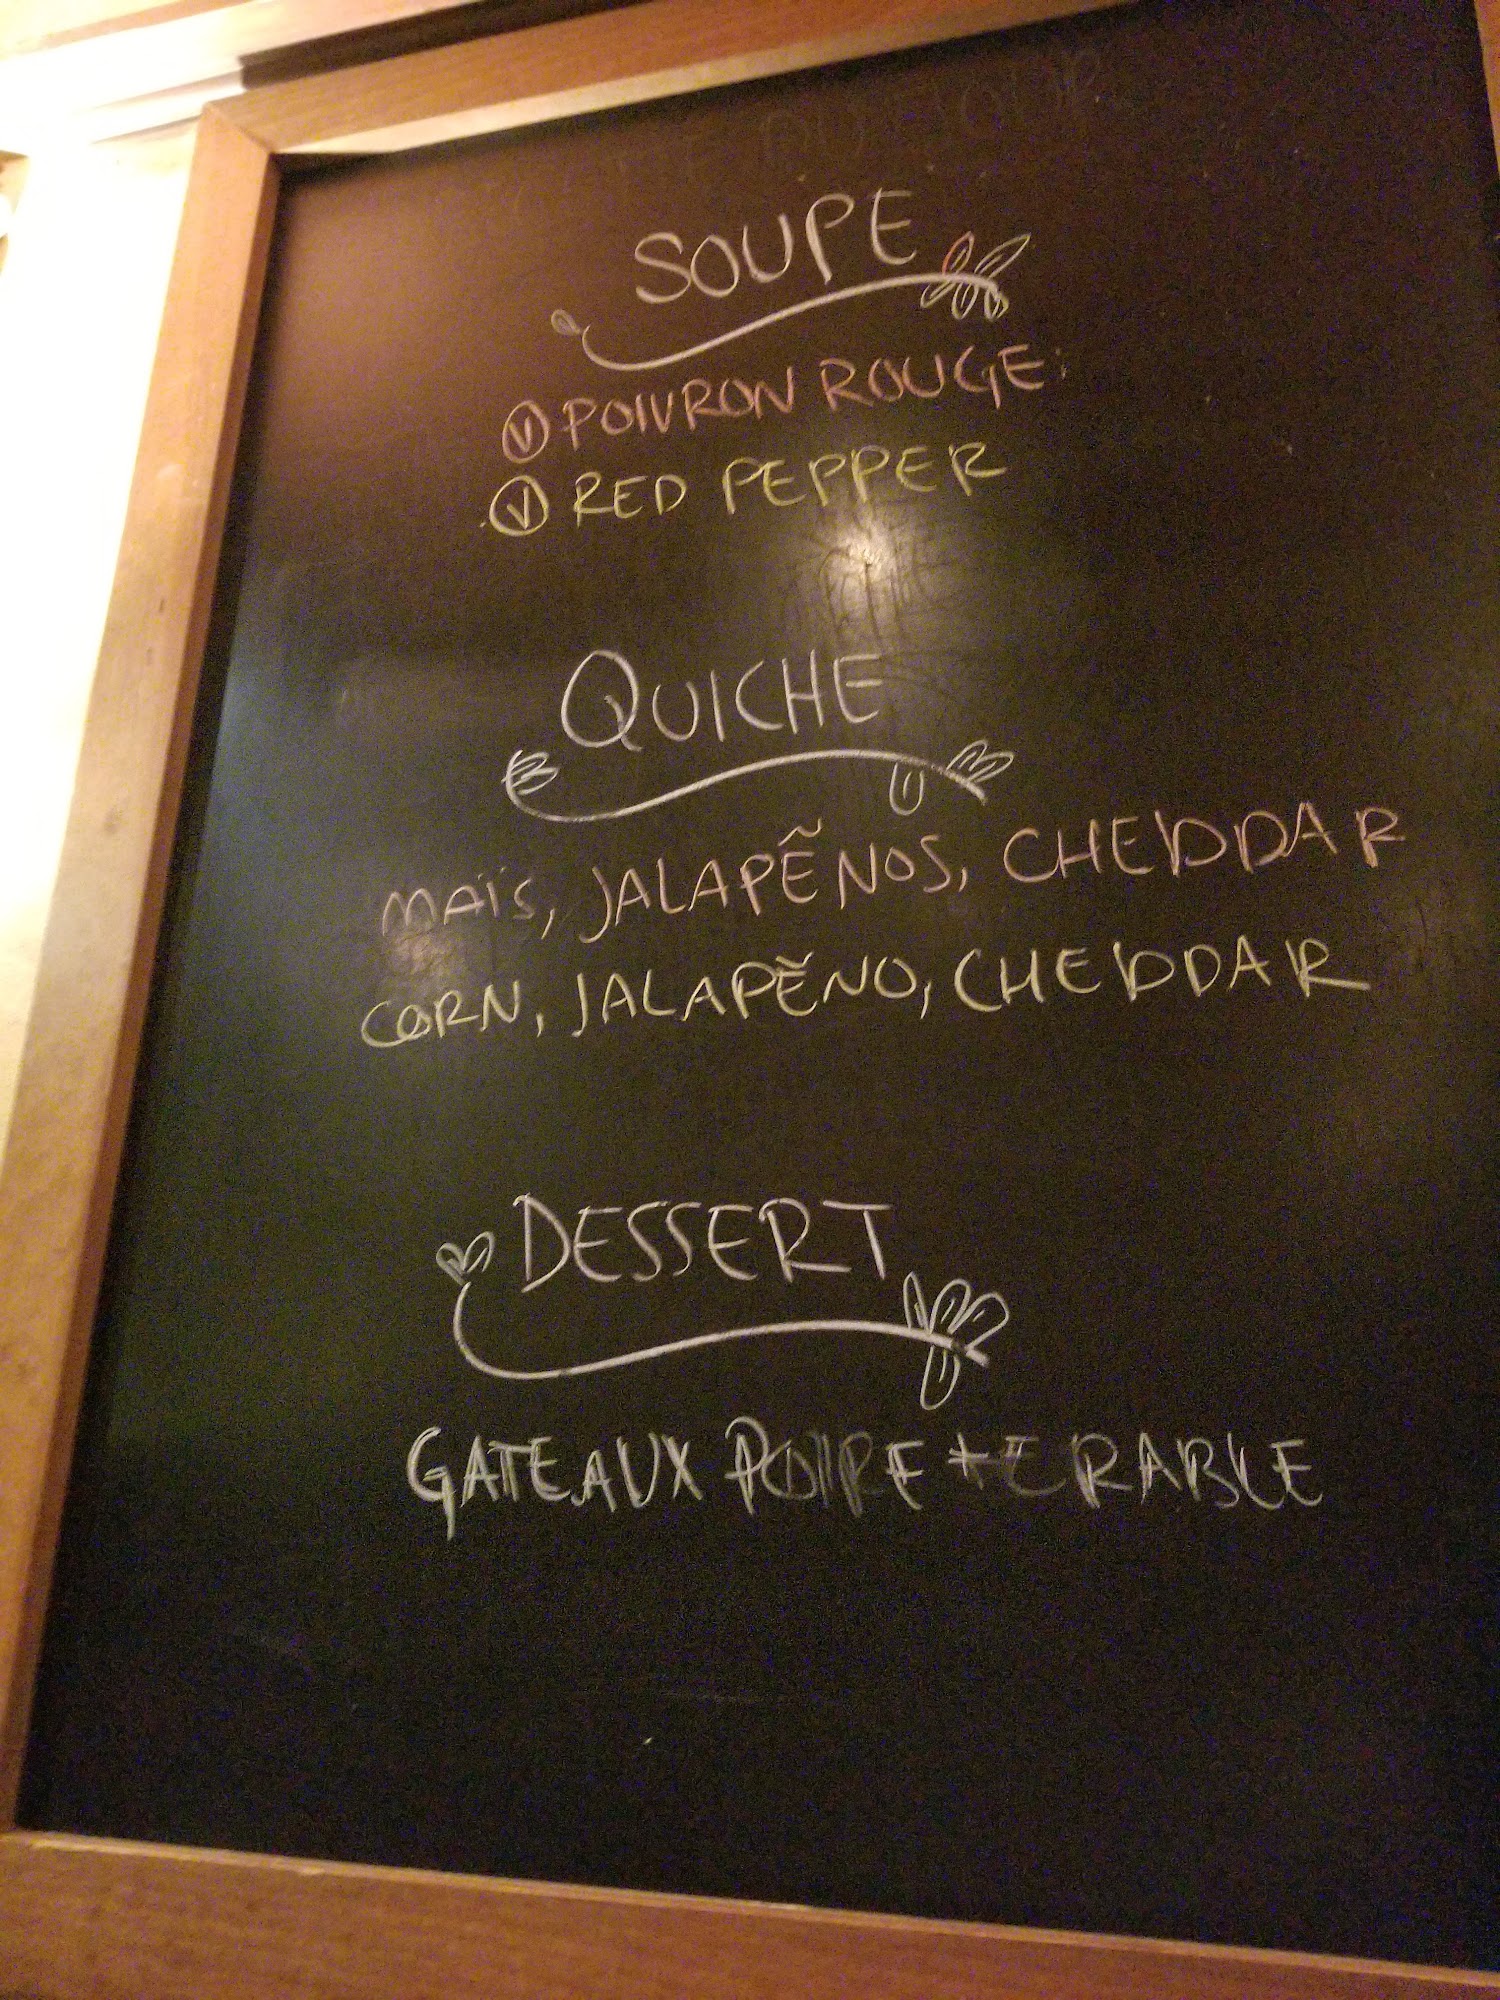 SOUPE
Ⓥ POIVRON ROUGE
Ⓥ RED PEPPER
QUICHE
MAÏS, JALAPẼNOS, CHEDDAR
CORN, JALAPẼNO, CHEDDAR
DESSERT
GATEAUX POIRE + ERABLE